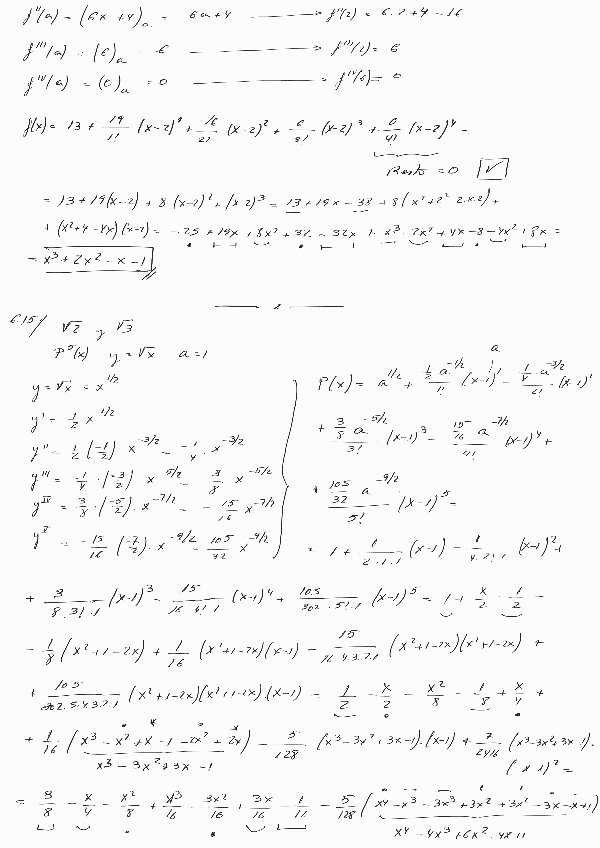 f''(a) = (6x + 4)a = 6a + 4 → f''(2) = 6·2+4 = 16
f'''(a) = (6)a = 6 → f'''(2) = 6
f''''(a) = (0)a = 0 → f''''(2) = 0
f(x) = 13 + 19/1! (x-2)¹ + 16/2! (x-2)² + 6/3! (x-2)³ + 0/4! (x-2)⁴ =
Resto = 0 ✓
= 13 + 19(x-2) + 8(x-2)² + (x-2)³ = 13 + 19x - 38 + 8(x² + 2² - 2·x·2) +
+ (x² + 4 - 4x)(x-2) = -25 + 19x + 8x² + 32 - 32x + x³ - 2x² + 4x - 8 - 4x² + 8x =
= x³ + 2x² - x - 1
6.15/ √2 y √3
P⁵(x) y = √x a = 1
y = √x = x^1/2
y' = 1/2 x^-1/2
y'' = 1/2 (-1/2) x^-3/2 = -1/4 x^-3/2
y''' = -1/4 · (-3/2) x^-5/2 = 3/8 · x^-5/2
y^IV = 3/8 · (-5/2) · x^-7/2 = -15/16 x^-7/2
y^V = -15/16 (-7/2) · x^-9/2 = 105/32 x^-9/2
P(x) = a^1/2 + 1/2 a^-1/2 / 1! (x-1)¹ - 1/4 · a^-3/2 / 2! · (x-1)²
+ 3/8 a^-5/2 / 3! (x-1)³ - 15/16 a^-7/2 / 4! (x-1)⁴ +
+ 105/32 a^-9/2 / 5! (x-1)⁵ =
= 1 + 1/2·1·1 (x-1) - 1/4·2·1 (x-1)² +
+ 3/8·3!·1 (x-1)³ - 15/16·4!·1 (x-1)⁴ + 105/302·5!·1 (x-1)⁵ = 1 + x/2 - 1/2 -
- 1/8 (x² + 1 - 2x) + 1/16 (x² + 1 - 2x)(x-1) - 15/16·4·3·2·1 (x² + 1 - 2x)(x² + 1 - 2x) +
+ 105/302·5·4·3·2·1 (x² + 1 - 2x)(x² + 1 - 2x)·(x-1) = 1/2 + x/2 - x²/8 - 1/8 + x/4 +
+ 1/16 (x³ - x² + x - 1 - 2x² + 2x) - 5/128 (x³ - 3x² + 3x - 1)·(x-1) + 7/2416 (x³ - 3x² + 3x - 1)·
x³ - 3x² + 3x - 1
(x-1)² =
= 3/8 - x/4 - x²/8 + x³/16 - 3x²/16 + 3x/16 - 1/16 - 5/128 (x⁴ - x³ - 3x³ + 3x² + 3x² - 3x - x + 1)
x⁴ - 4x³ + 6x² - 4x + 1